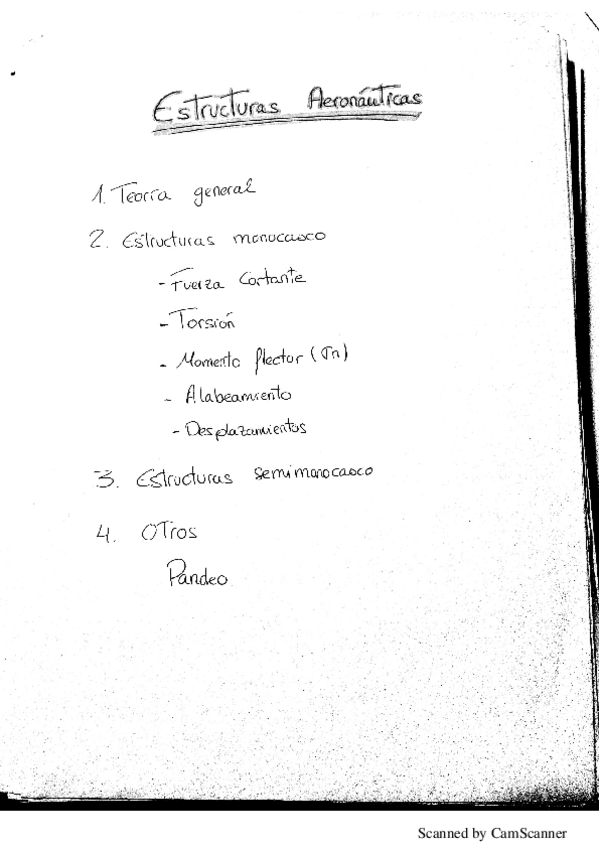 Estructuras Aeronáuticas
1. Teoría general
2. Estructuras monocasco
- Fuerza Cortante
- Torsión
- Momento flector (σn)
- Alabeamiento
- Desplazamientos
3. Estructuras semimonocasco
4. Otros
Pandeo
Scanned by CamScanner